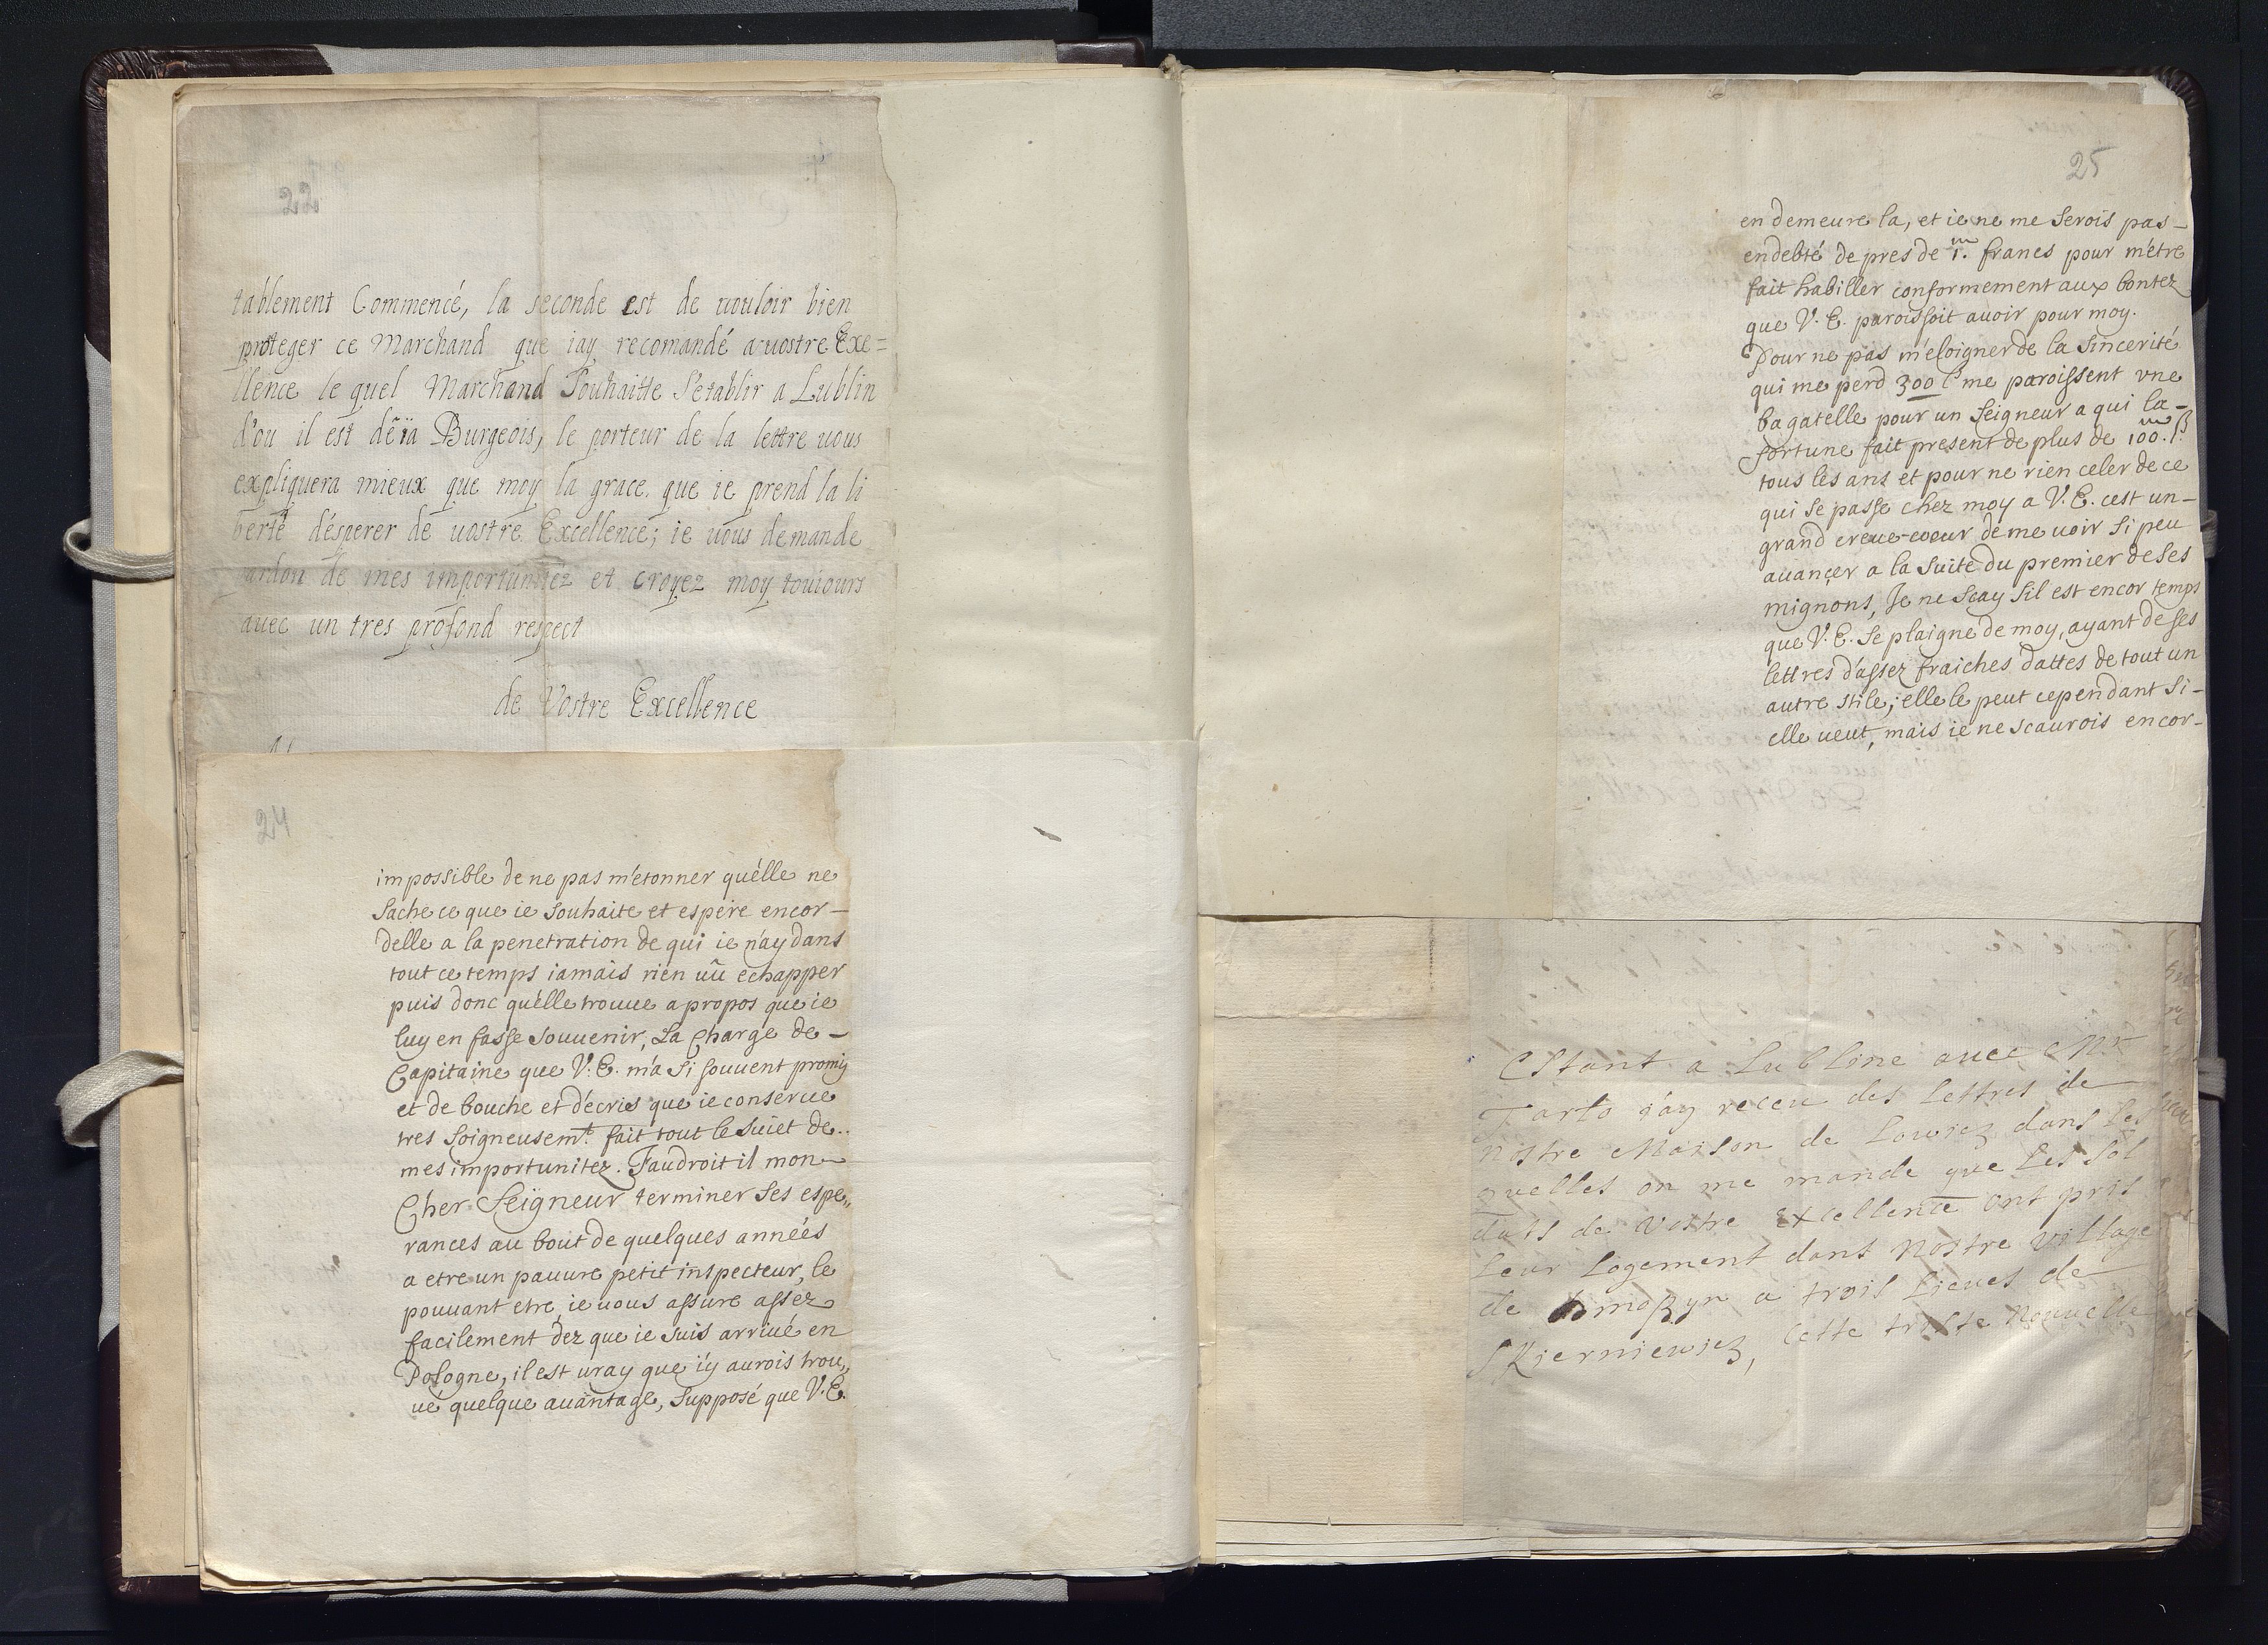 22
tablement Commencé, la seconde est de uouloir bien
proteger ce Marchand que iay recomandé a uostre Exe=
llence le quel Marchand Souhaitte S'etablir a Lublin
d'ou il est dêïa Burgeois, le porteur de la lettre uous
expliquera mieux que moy la grace que ie prend la li
berté désperer de uostre Excellence; ie uous demande
pardon de mes importunitéz et croyez moy touiours
auec un tres profond respect
de Vostre Excellence
24
impossible de ne pas m'etonner qu'elle ne
Sache ce que ie Souhaite et espere encor –
delle a la penetration de qui ie n'ay dans
tout ce temps iamais rien uû echapper
puis donc qu'elle trouue a propos que ie
luy en fasse Souuenir, La Charge de –
Capitaine que V. E. m'a Si souuent promis
et de bouche et d'ecris que ie conserue
tres Soigneusemt. fait tout le Suiet de..
mes importunitez. Faudroit il mon –
Cher Seigneur terminer Ses espe„
rances au bout de quelques années
a etre un pauure petit inspecteur, le
pouuant etre ie uous assure assez
facilement dez que ie suis arriué en
Pologne, il est uray que i'y aurois trou„
ué quelque auantage, Supposé que V. E.
25
en demeure la, et ie ne me Serois pas –
endebté de pres de 1.m francs pour m'etre
fait habiller conformement aux bontez
que V. E. paroissoit auoir pour moy.
Pour ne pas m'eloigner de la Sincerité
qui me perd 300 ls me paroissent une
bagatelle pour un Seigneur a qui la –
fortune fait present de plus de 100.m ls
tous les ans et pour ne rien celer de ce
qui Se passe chez moy a V. E. cest un –
grand creue-coeur de me uoir Si peu
auançer a la Suite du premier de Ses
mignons, Je ne Scay Sil est encor temps
que V. E. Se plaigne de moy, ayant de Ses
lettres d'assez fraiches dattes de tout un
autre stile; elle le peut cependant Si –
elle ueut, mais ie ne scaurois encor –
Estant a Lubline auec Mr
Tarlo j'ay receu des Lettres de
Nostre Maison de Lowicz dans les
quelles on me mande que Les Sol
dats de Vostre Excellence ont pris
Leur Logement dans Nostre Village
de a trois Lieues de
SKierniewicz, cette triste Nouvelle